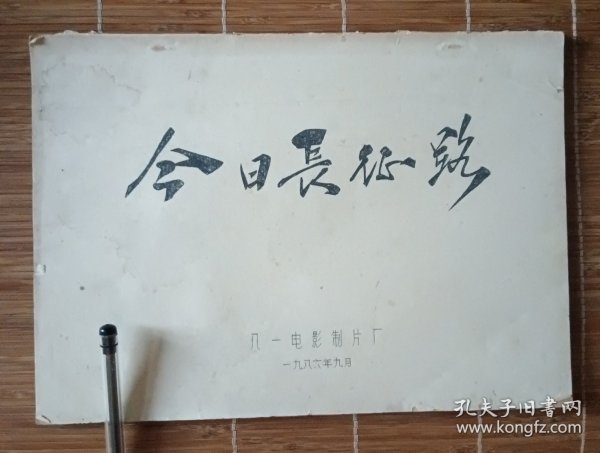 今日長征路
八一电影制片厂
一九八六年九月
孔夫子旧書网
www.kongfz.com